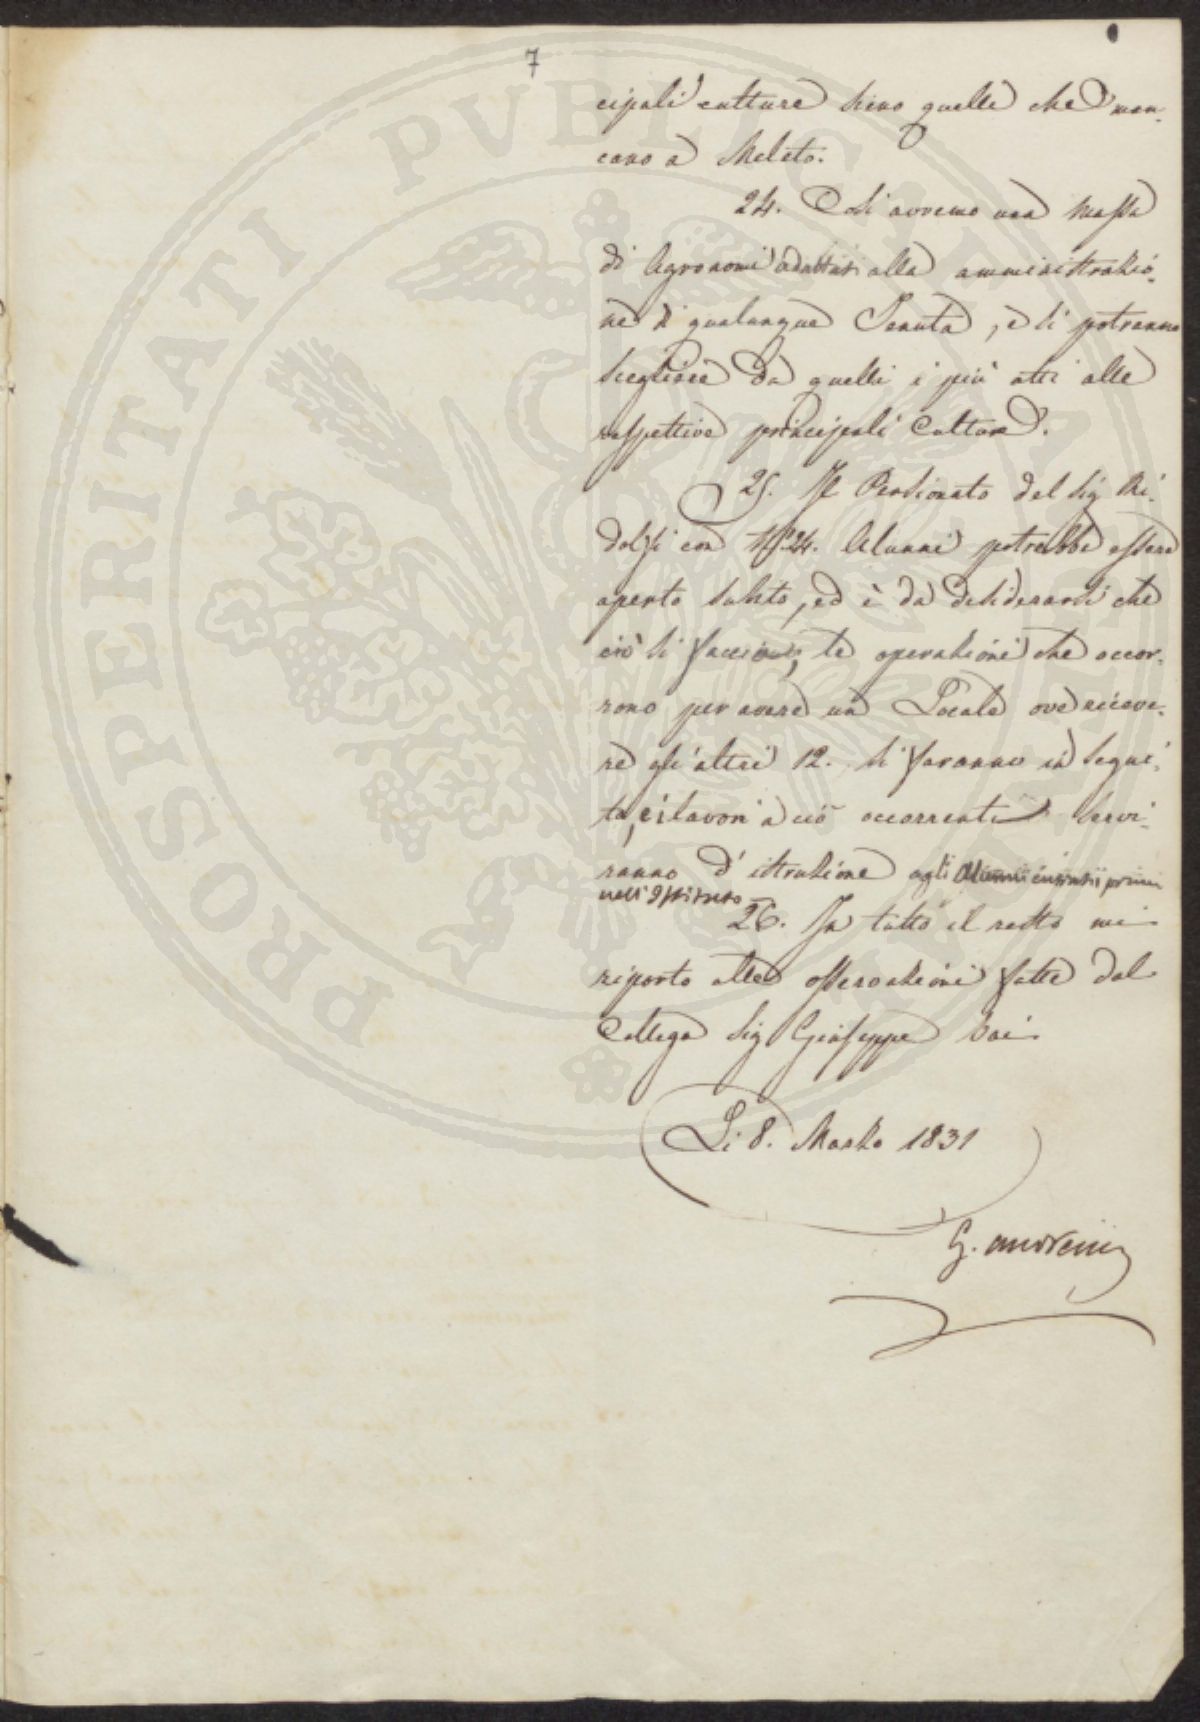 7
cipali culture sieno quelle che man-
cano a Meleto.
24. Così avremo una massa
di Agronomi adattati alla amministrazio-
ne di qualunque Tenuta, e si potranno
scegliere da quelli i più atti alle
rispettive principali Culture.
25. Il Pensionato del Sig Ri-
dolfi con N° 24. Alunni potrebbe essere
aperto subito, ed è da desiderarsi che
ciò si faccia; le operazioni che occor-
rono per avere un Locale ove riceve-
re gli altri 12. si faranno in segui-
to, e i lavori a ciò occorrenti servi-
ranno d'istruzione agli Alunni entrati primi
nell'Istituto
26. In tutto il resto mi
riporto alle osservazioni fatte dal
Collega Sig Giuseppe
Li 8. Marzo 1831
G. Andreini
PROSPERITATI PVBLICAE